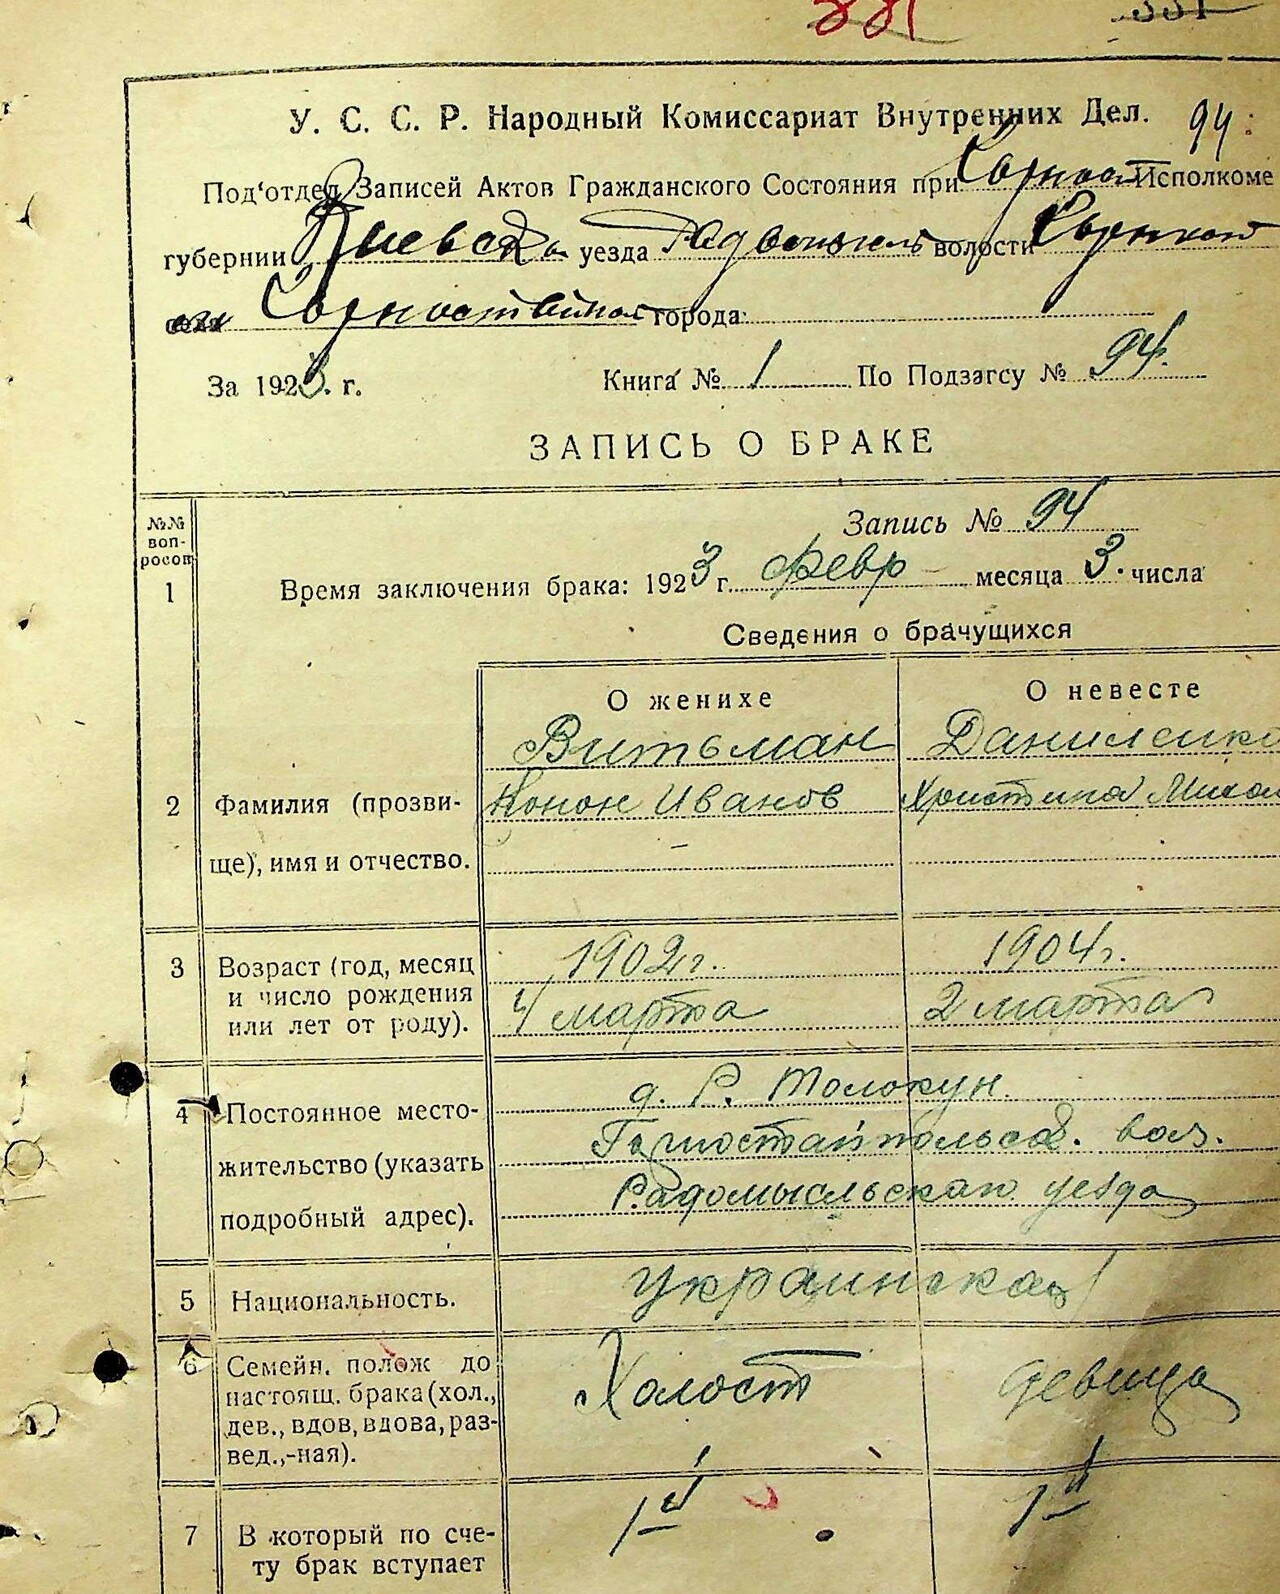 881 331
У. С. С. Р. Народный Комиссариат Внутренних Дел. 94
Под'отдел Записей Актов Гражданского Состояния при Исполкоме
губернии Киевск уезда волости
города
За 1923. г. Книга № 1 По Подзагсу № 94.
ЗАПИСЬ О БРАКЕ
№№ вопросов
Запись № 94
1 Время заключения брака: 1923 г. февр месяца 3. числа
Сведения о брачущихся
О женихе О невесте
Витьман Даниленко
2 Фамилия (прозви- Конон Иванов Христина
ще), имя и отчество.
3 Возраст (год, месяц 1902 г. 1904 г.
и число рождения 4 марта 2 марта
или лет от роду).
д. Р. Толокун.
4 Постоянное место- Горностайпольск. вол.
жительство (указать Радомысльского уезда
подробный адрес).
5 Национальность. Украинская
6 Семейн. полож до Холост девица
настоящ. брака (хол.,
дев., вдов, вдова, раз-
вед.,-ная).
7 В который по сче- 1й 1й
ту брак вступает